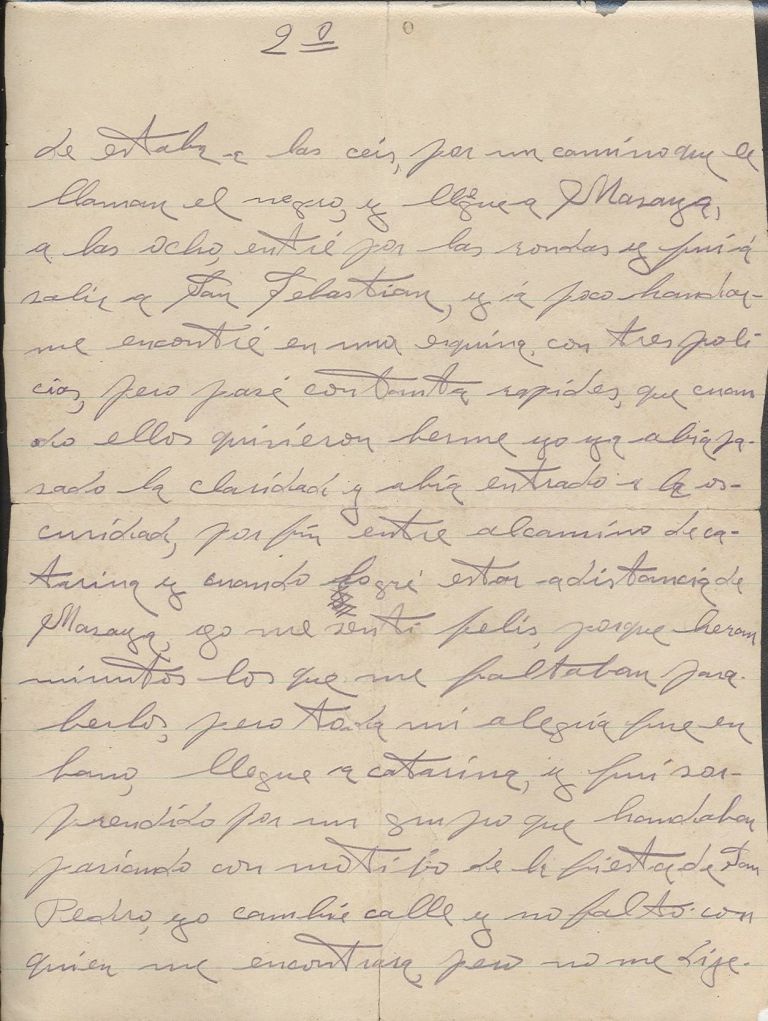 2º
de estaba a las ceis, por un camino que le
llaman el negro, y llegue a Masaya,
a las ocho, entré por las rondas y fui á
salir a San Sebastian, y á poco handar
me encontré en una esquina con tres poli-
cias, pero pasé con tanta rapides, que cuan
do ellos quisieron berme yo ya abia pa-
sado la claridad y abia entrado a la os-
curidad, por fin entre al camino de ca-
tarina y cuando logré estar a distancia de
Masaya, yo me senti felis, porque heran
minutos los que me faltaban para
berlos, pero toda mi alegria fue en
bano, llegue a catarina, y fui sor-
prendido por un grupo que handaban
pasiando con motibo de la fiesta de San
Pedro, yo cambié calle y no falto con
quien me encontrara, pero no me dije-